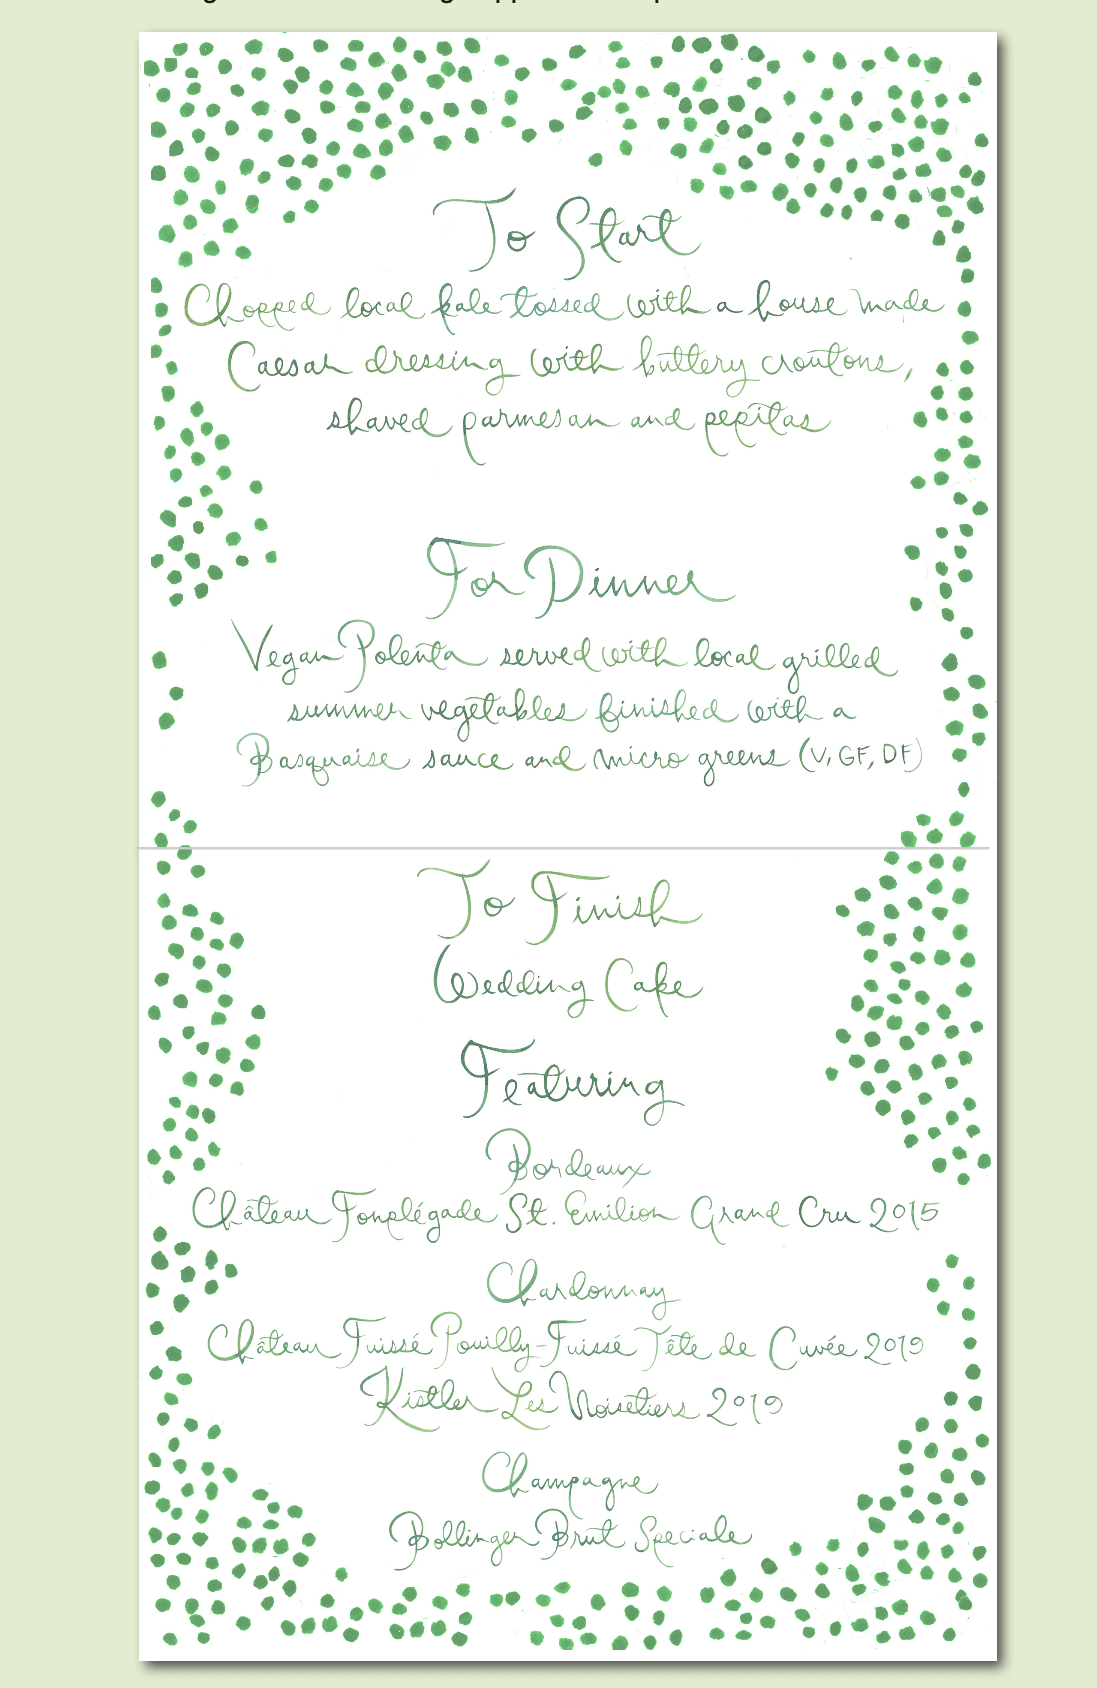 To Start
Chopped local kale tossed with a house made
Caesar dressing with buttery croutons,
shaved parmesan and pepitas
For Dinner
Vegan Polenta served with local grilled
summer vegetables finished with a
Basquaise sauce and micro greens (V, GF, DF)
To Finish
Wedding Cake
Featuring
Bordeaux
Château Fonplégade St. Emilion Grand Cru 2015
Chardonnay
Château Fuissé Pouilly-Fuissé Tête de Cuvée 2019
Kistler Les Noisetiers 2019
Champagne
Bollinger Brut Speciale